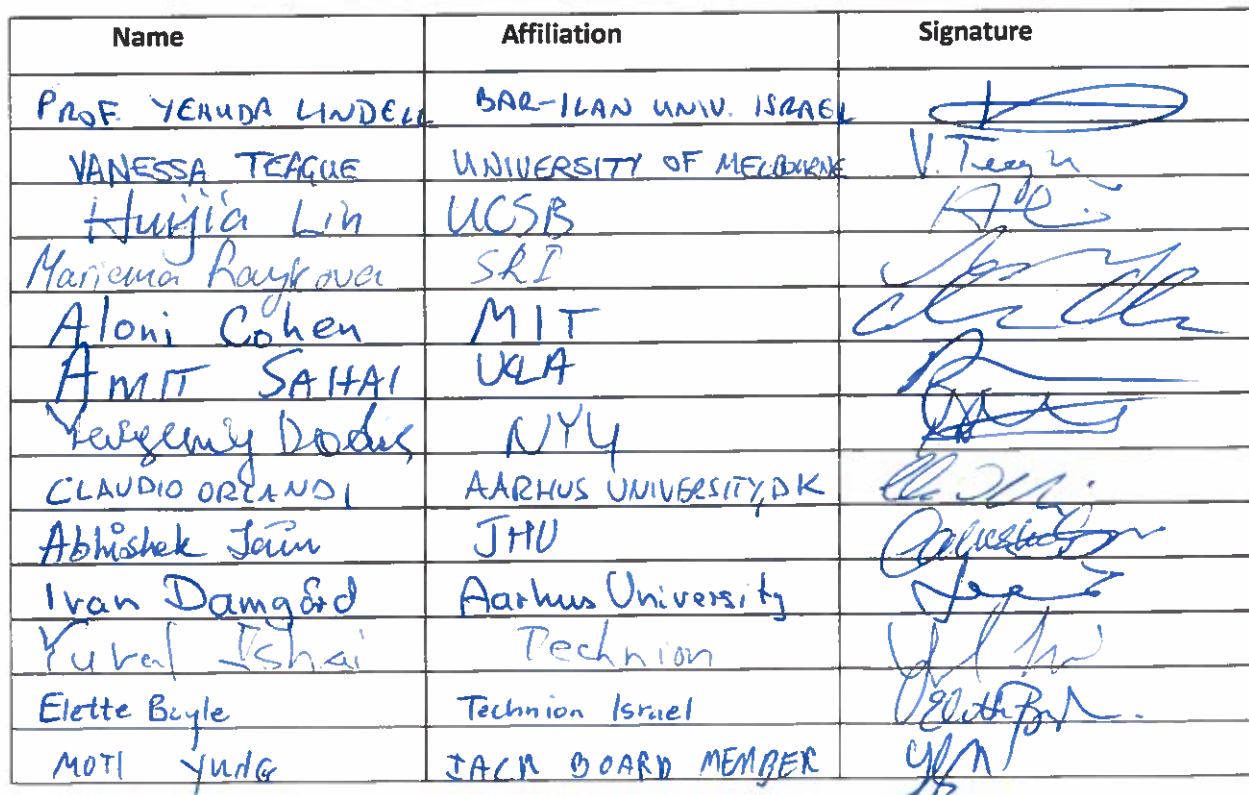 Name Affiliation Signature
PROF. YEHUDA LINDELL BAR-ILAN UNIV. ISRAEL
VANESSA TEAGUE UNIVERSITY OF MELBOURNE V. Teague
Huijia Lin UCSB
Mariana Raykova SRI
Aloni Cohen MIT
AMIT SAHAI UCLA
Yevgeniy Dodis NYU
CLAUDIO ORLANDI AARHUS UNIVERSITY, DK
Abhishek Jain JHU
Ivan Damgård Aarhus University
Yuval Ishai Technion
Elette Boyle Technion Israel
MOTI YUNG IACR BOARD MEMBER